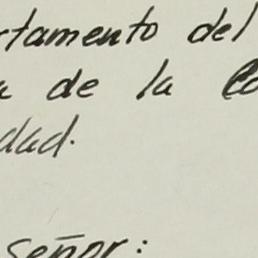 rtamento del
a de la
dad.
señor: